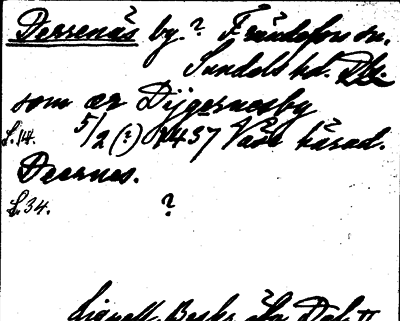 Derrenäs by.? Frändefors sn.
Sundals hd. Dls.
som är Dijgernesby
L.14. 5/2 (?) 1457 Våse härad.
Deernes.
L.34. ?
Lignell, Beskr. öfv. Dal. II